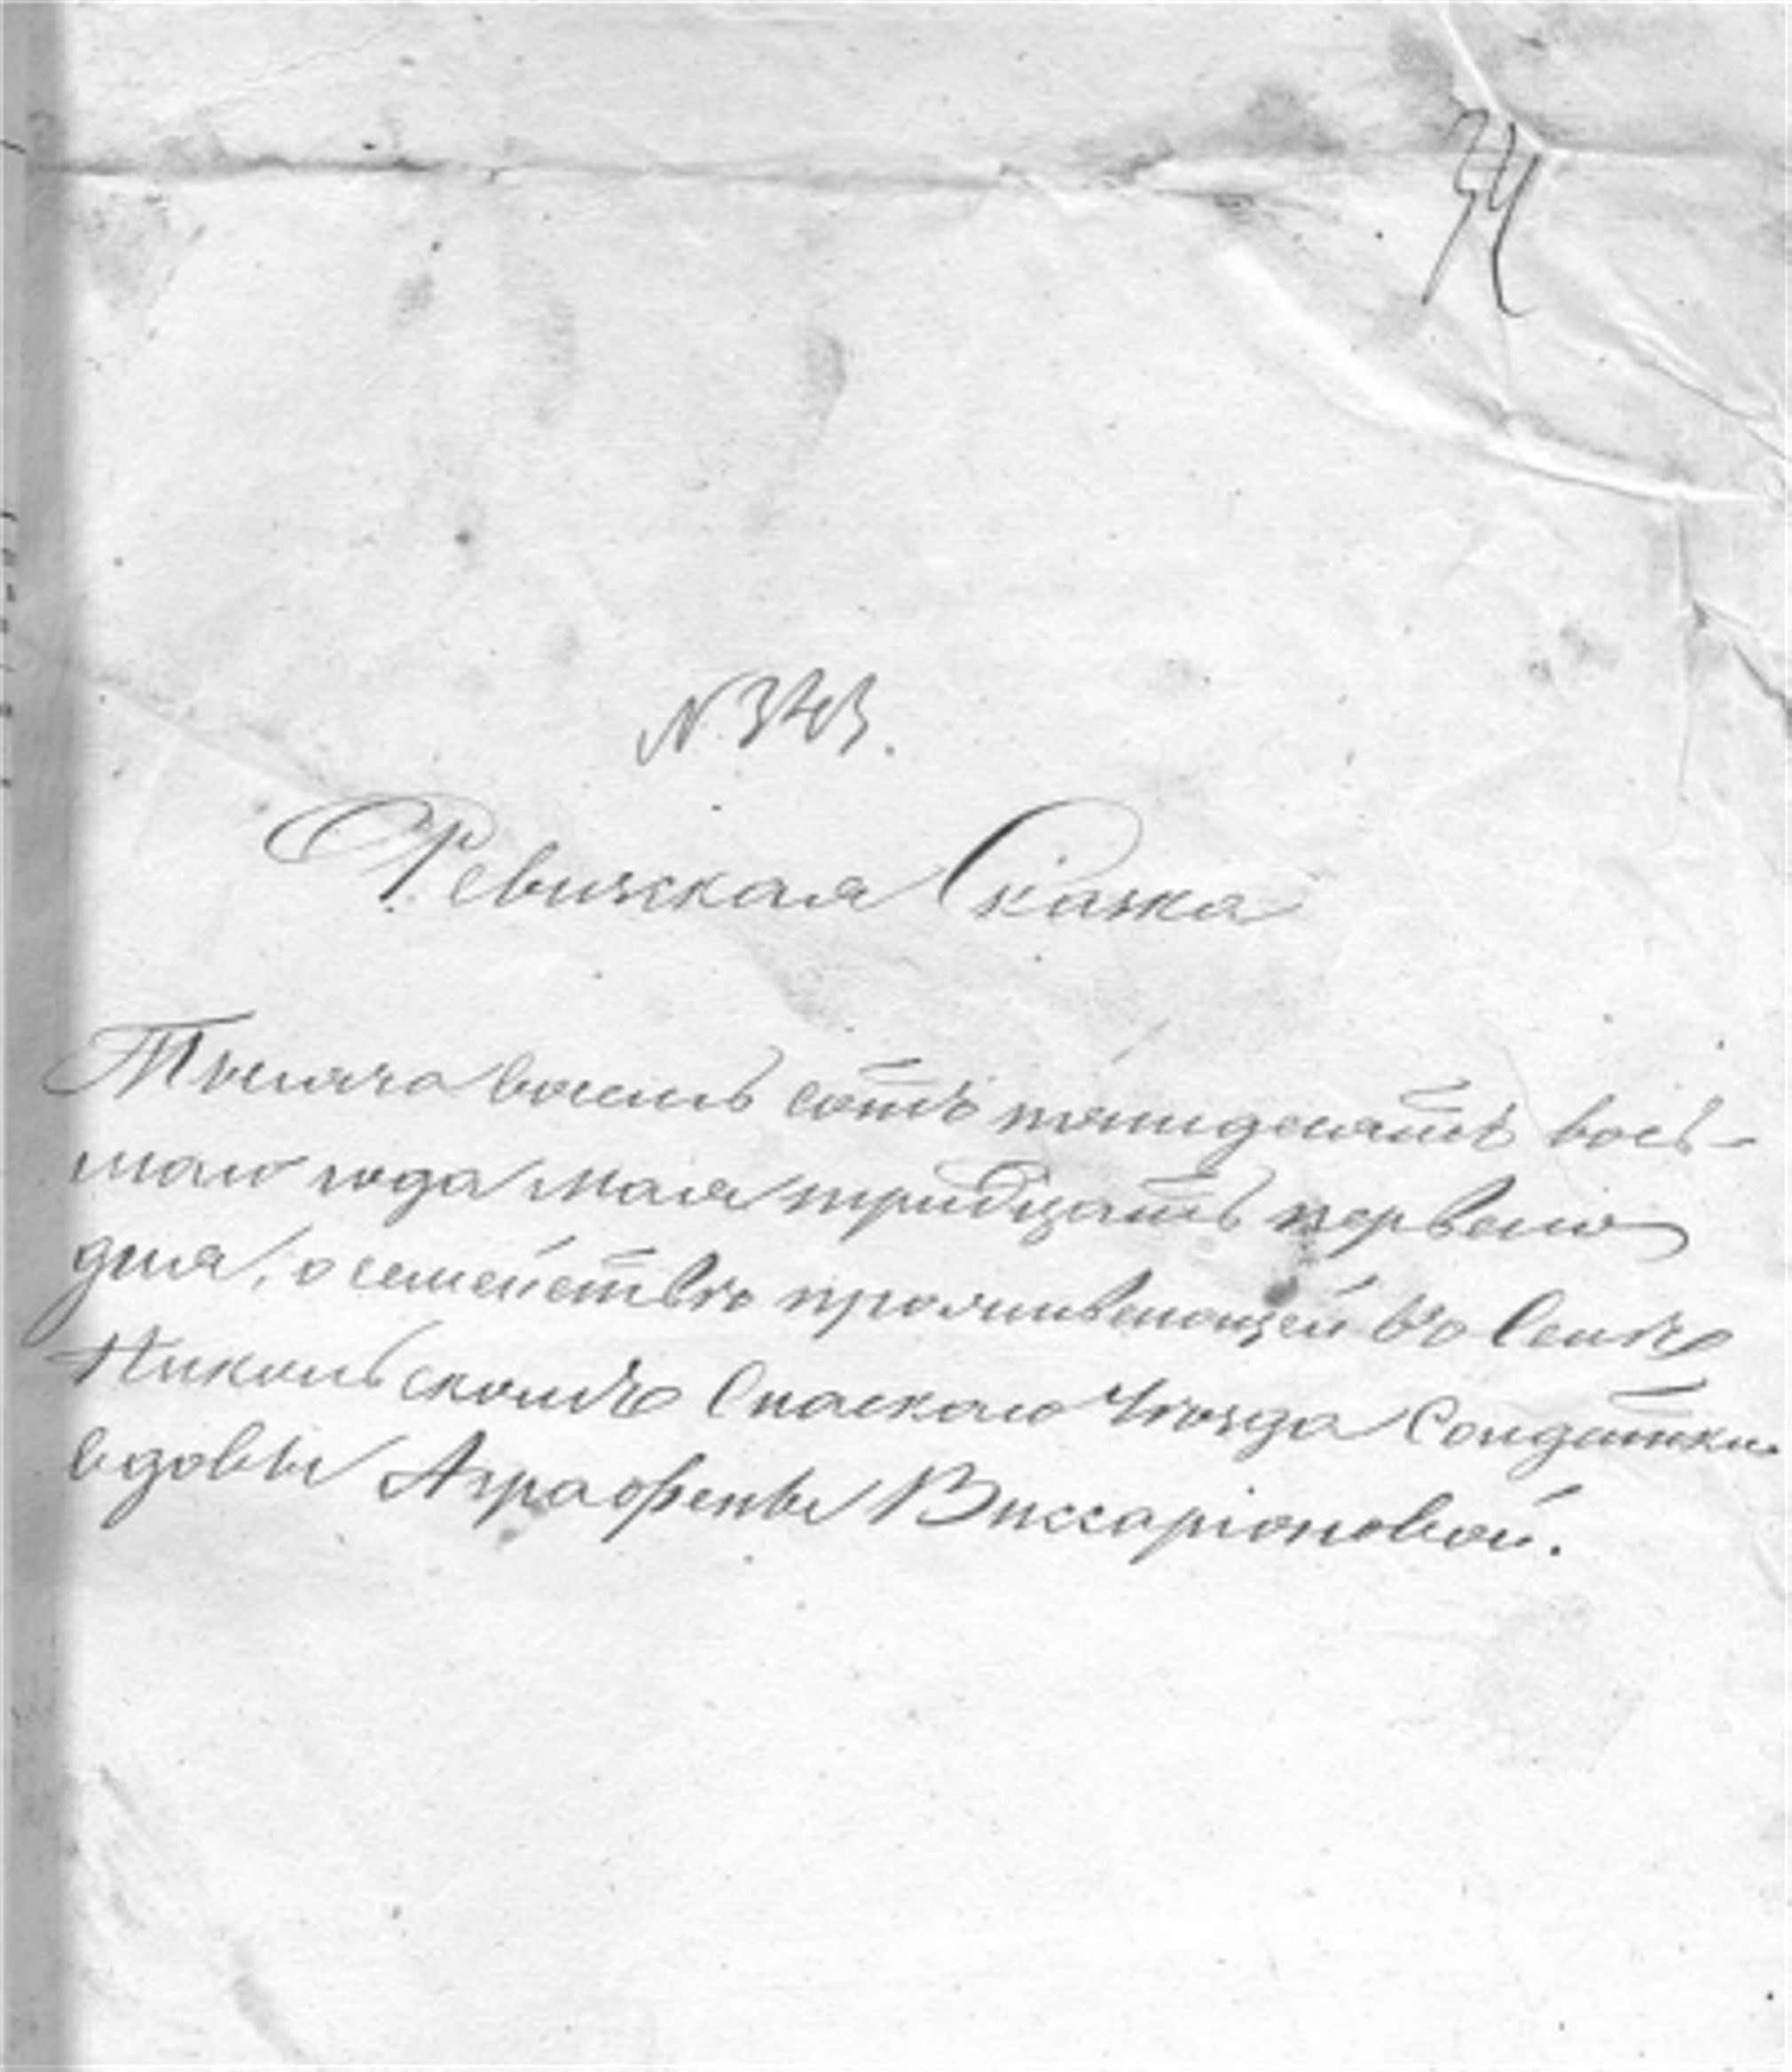 34
N. 343.
Ревизская Сказка
Тысяча восемь сотъ пятидесятъ вось-
маго года мая тридцать перваго
дня, о семействѣ проживающей въ Селѣ
Никольскомъ Спаскаго Уѣзда Солдатки
вдовы Аграфены Виссаріоновой.